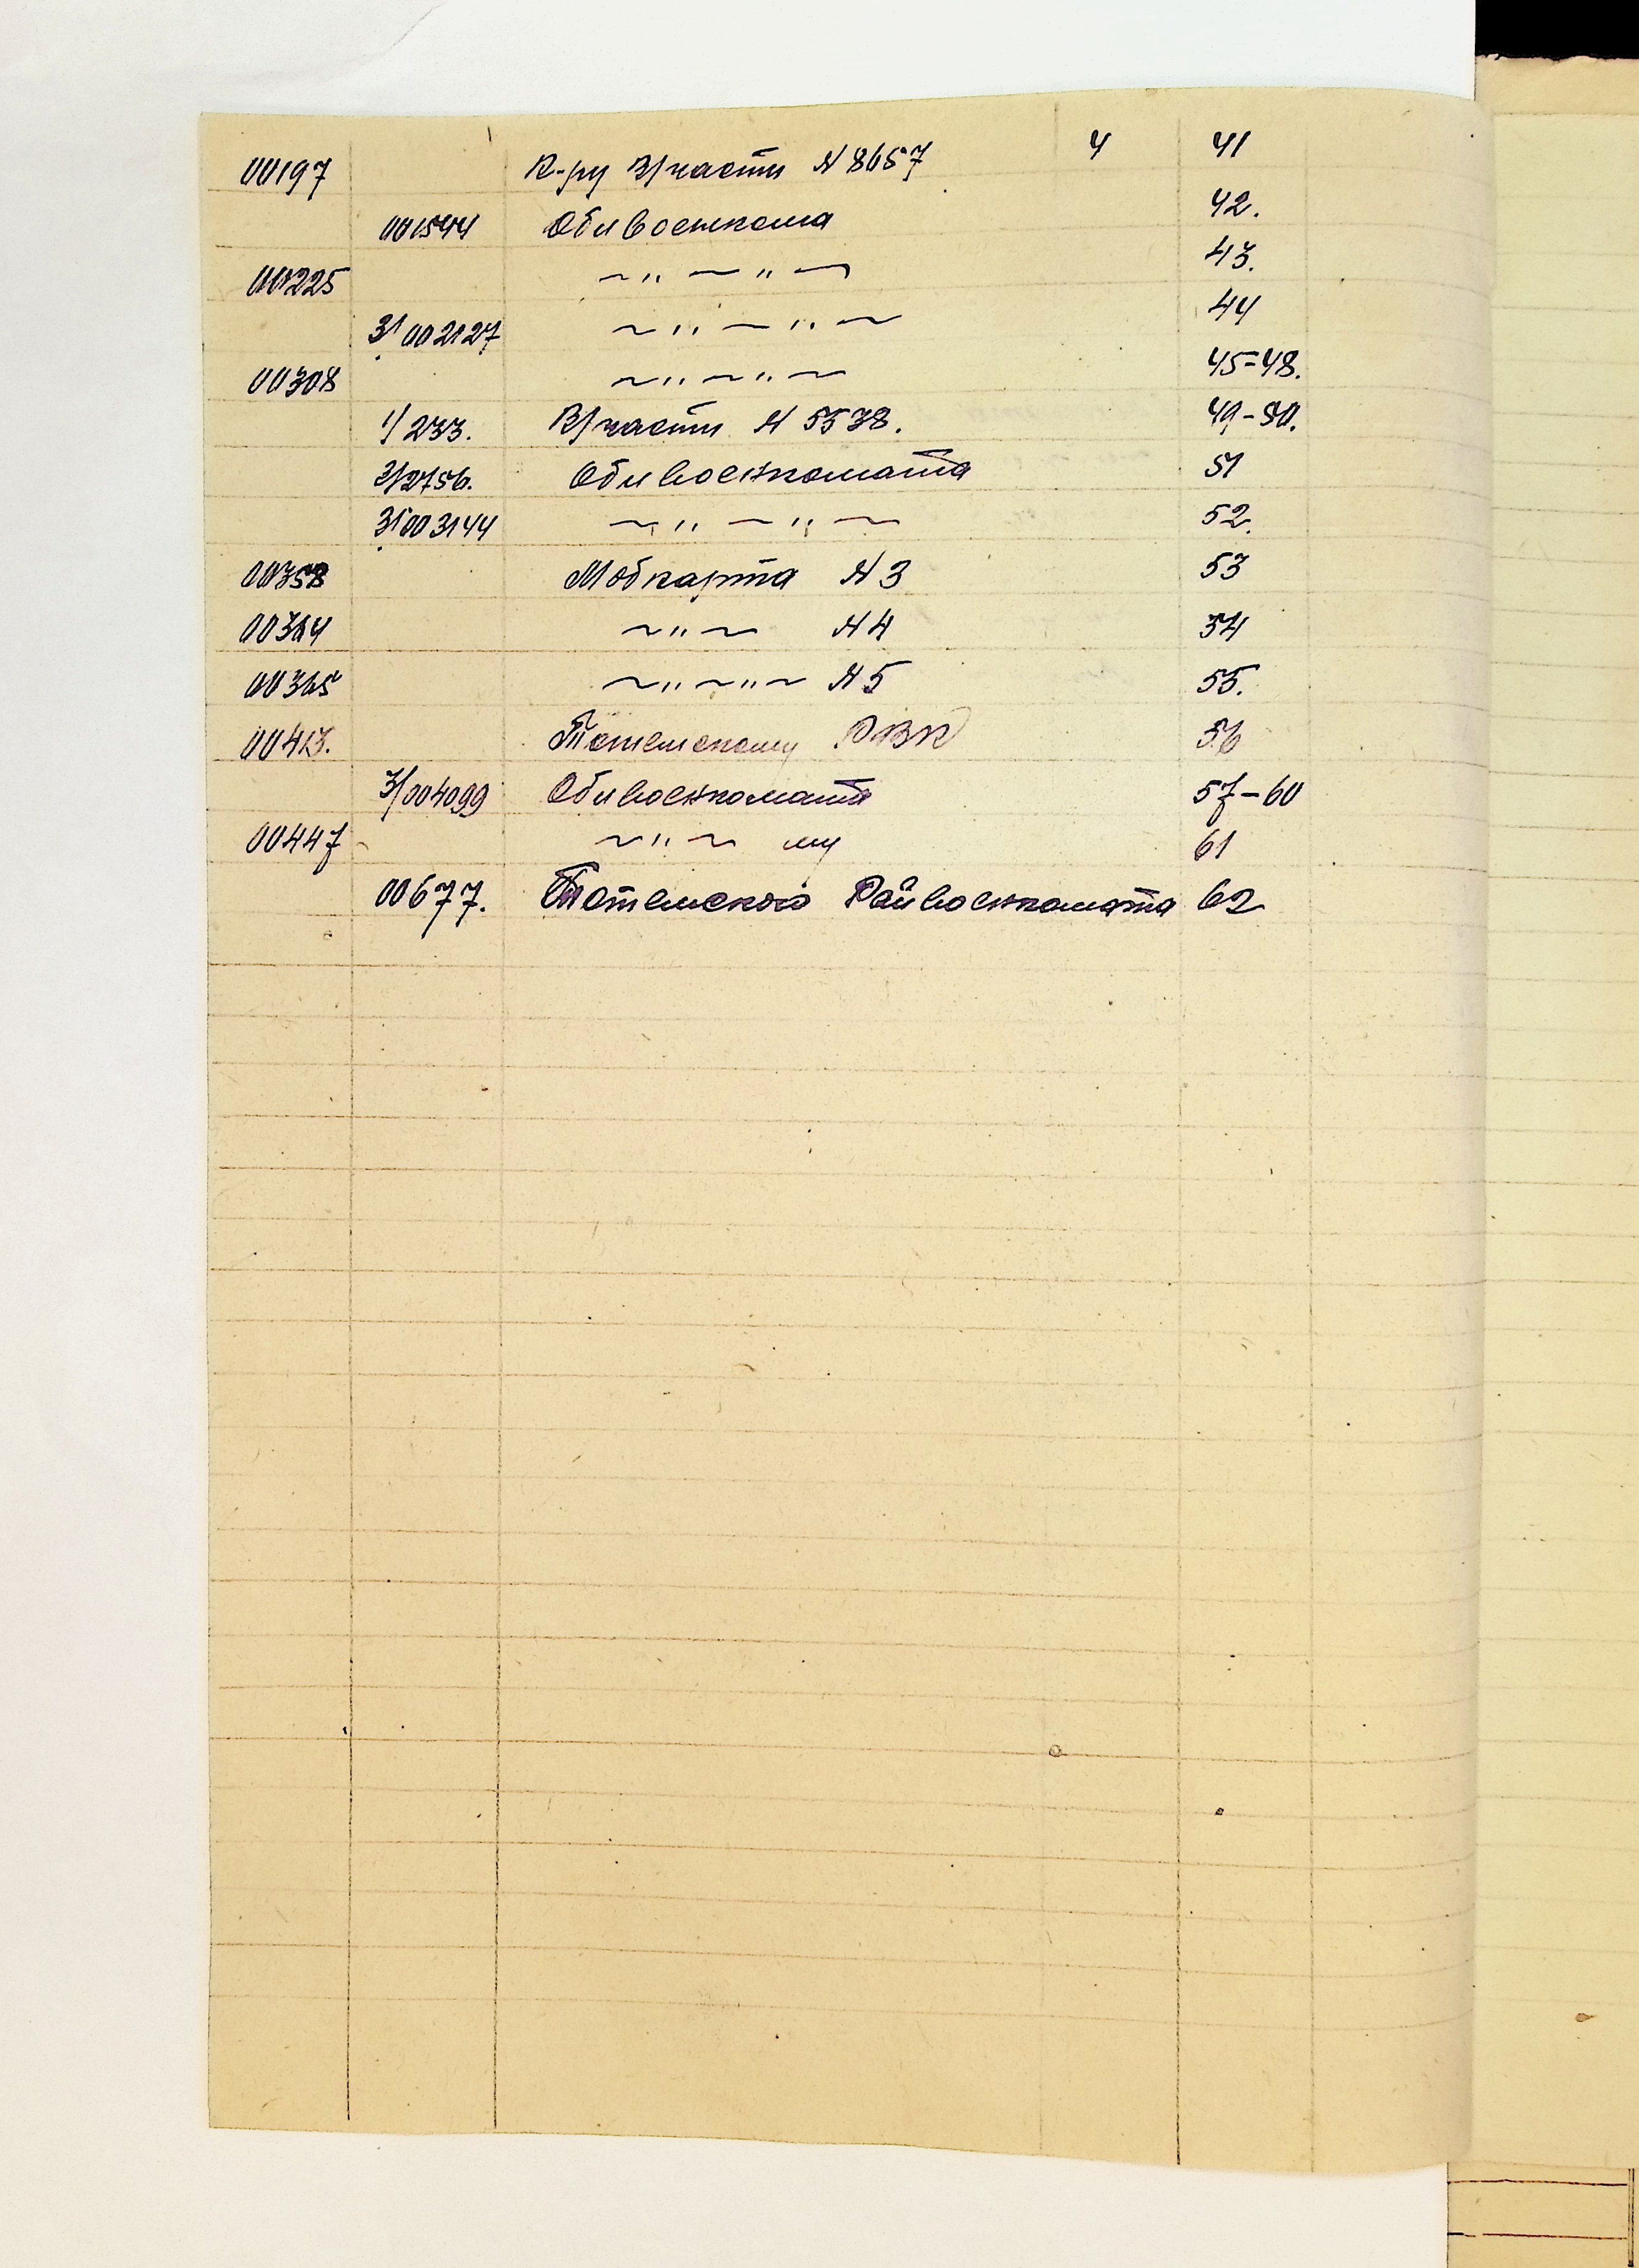 00197 К-ру В/части N 8657 4 41
001544 Облвоенкома 42.
00225 ~ " ~ " ~ 43.
3/002127 ~ " ~ " ~ 44
00308 ~ " ~ " ~ 45-48.
1/233. В/части N 5538. 49-50.
3/2756. Облвоенкомата 51
3/003144 ~ " ~ " ~ 52.
00358 Мобкарта N 3 53
00364 ~ " ~ N 4 54
00365 ~ " ~ " ~ N 5 55.
00413. Тотемскому РВК 56
3/004099 Облвоенкомата 57-60
00447 ~ " ~ му 61
00677. Тотемского Райвоенкомата 62